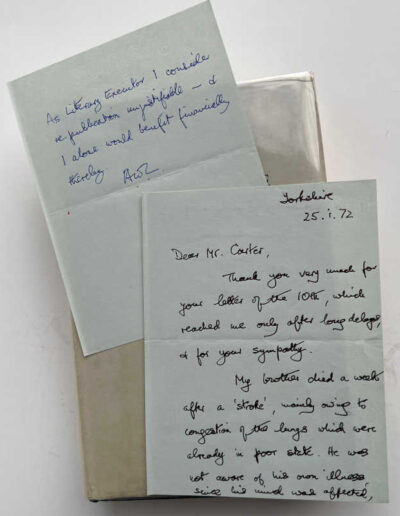 As Literary Executor I consider
re-publication unjustifiable — &
I alone would benefit financially
thereby AWL
Yorkshire
25.i.72
Dear Mr. Carter,
Thank you very much for
your letter of the 10th, which
reached me only after long delays,
& for your sympathy.
My brother died a week
after a 'stroke', mainly owing to
congestion of the lungs which were
already in poor state. He was
not aware of his own illness
since his mind was affected,